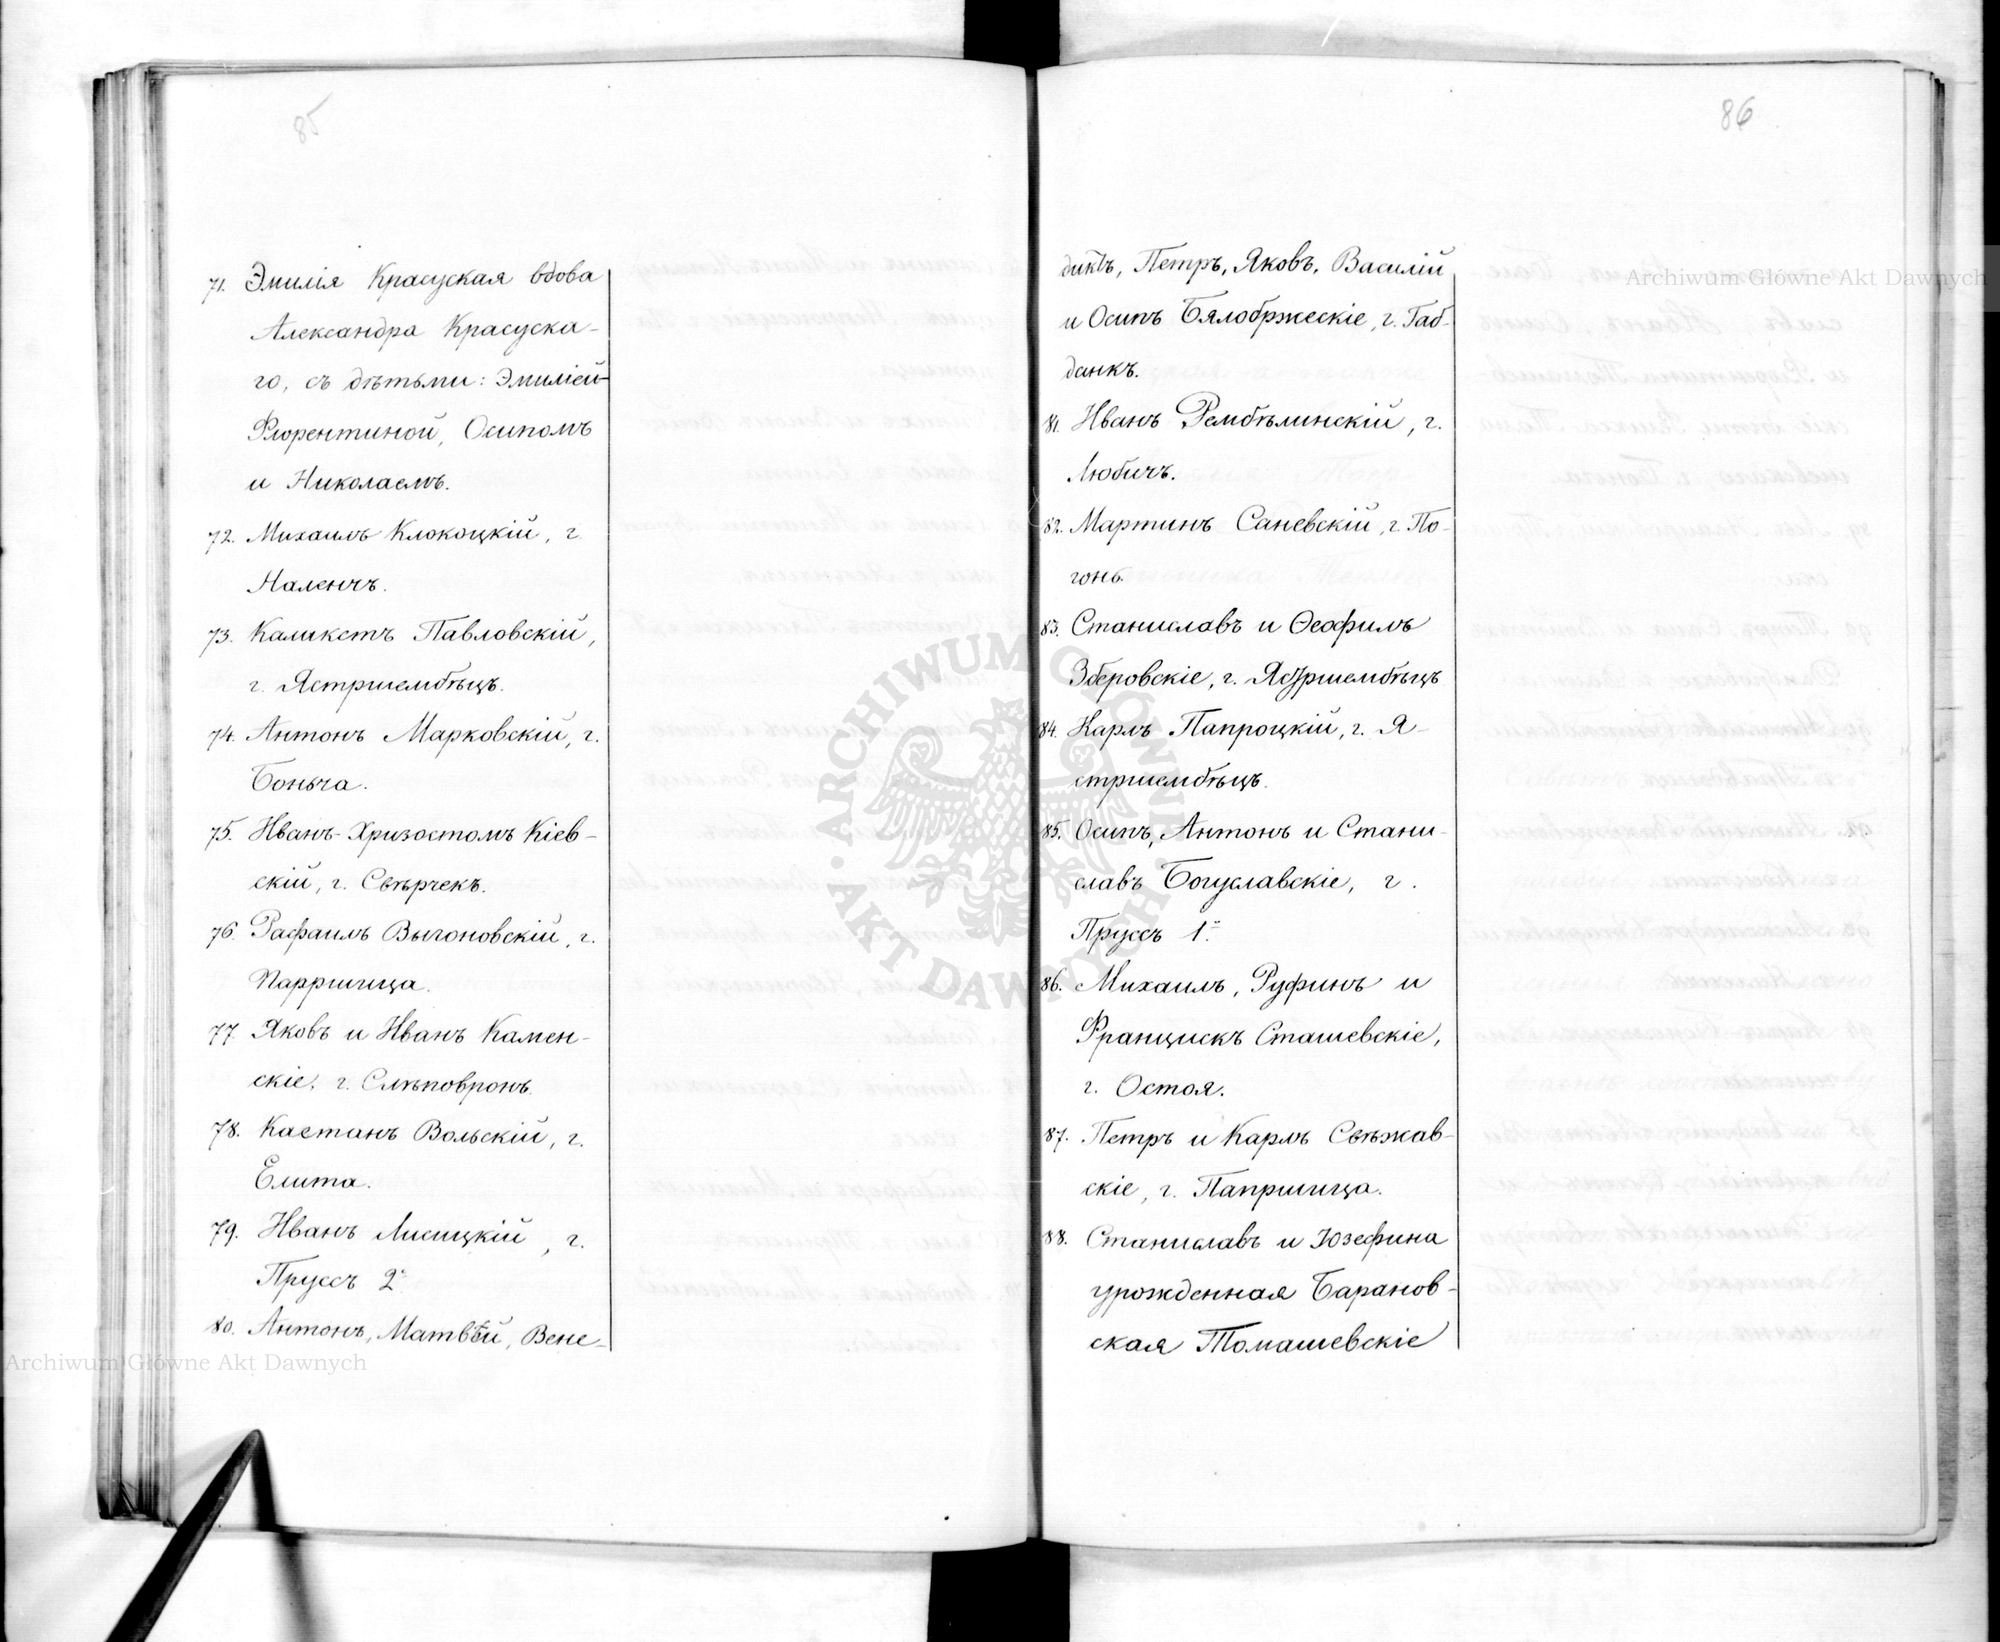 85
71. Эмилія Красуская вдова
Александра Красуска-
го, съ дѣтьми: Эмиліей-
Флорентиной, Осипомъ
и Николаемъ.
72. Михаилъ Клокоцкій, г.
Наленчъ.
73. Каликстъ Павловскій,
г. Ястршембѣцъ.
74. Антонъ Марковскій, г.
Боньча.
75. Иванъ-Хризостомъ Кіев-
скій, г. Свѣрчекъ.
76. Рафаилъ Выгоновскій, г.
Парршица.
77. Яковъ и Иванъ Камен-
скіе, г. Слѣповронъ.
78. Каетанъ Вольскій, г.
Елита.
79. Иванъ Лисицкій, г.
Пруссъ 2º
80. Антонъ, Матвѣй, Вене-
86
диктъ, Петръ, Яковъ, Василій
и Осипъ Бялобржескіе, г. Габ-
данкъ.
81. Иванъ Рембѣлинскій, г.
Любичъ.
82. Мартинъ Саневскій, г. По-
гонь.
83. Станиславъ и Ѳеофилъ
Зберовскіе, г. Ястршембѣцъ
84. Карлъ Папроцкій, г. Я-
стршембѣцъ.
85. Осипъ, Антонъ и Стани-
славъ Богуславскіе, г.
Пруссъ 1º.
86. Михаилъ, Руфинъ и
Францискъ Сташевскіе,
г. Остоя.
87. Петръ и Карлъ Свѣжав-
скіе, г. Папршица.
88. Станиславъ и Юзефина
урожденная Баранов-
ская Томашевскіе
Archiwum Główne Akt Dawnych
Archiwum Główne Akt Dawnych
ARCHIWUM GŁÓWNE
AKT DAWNYCH